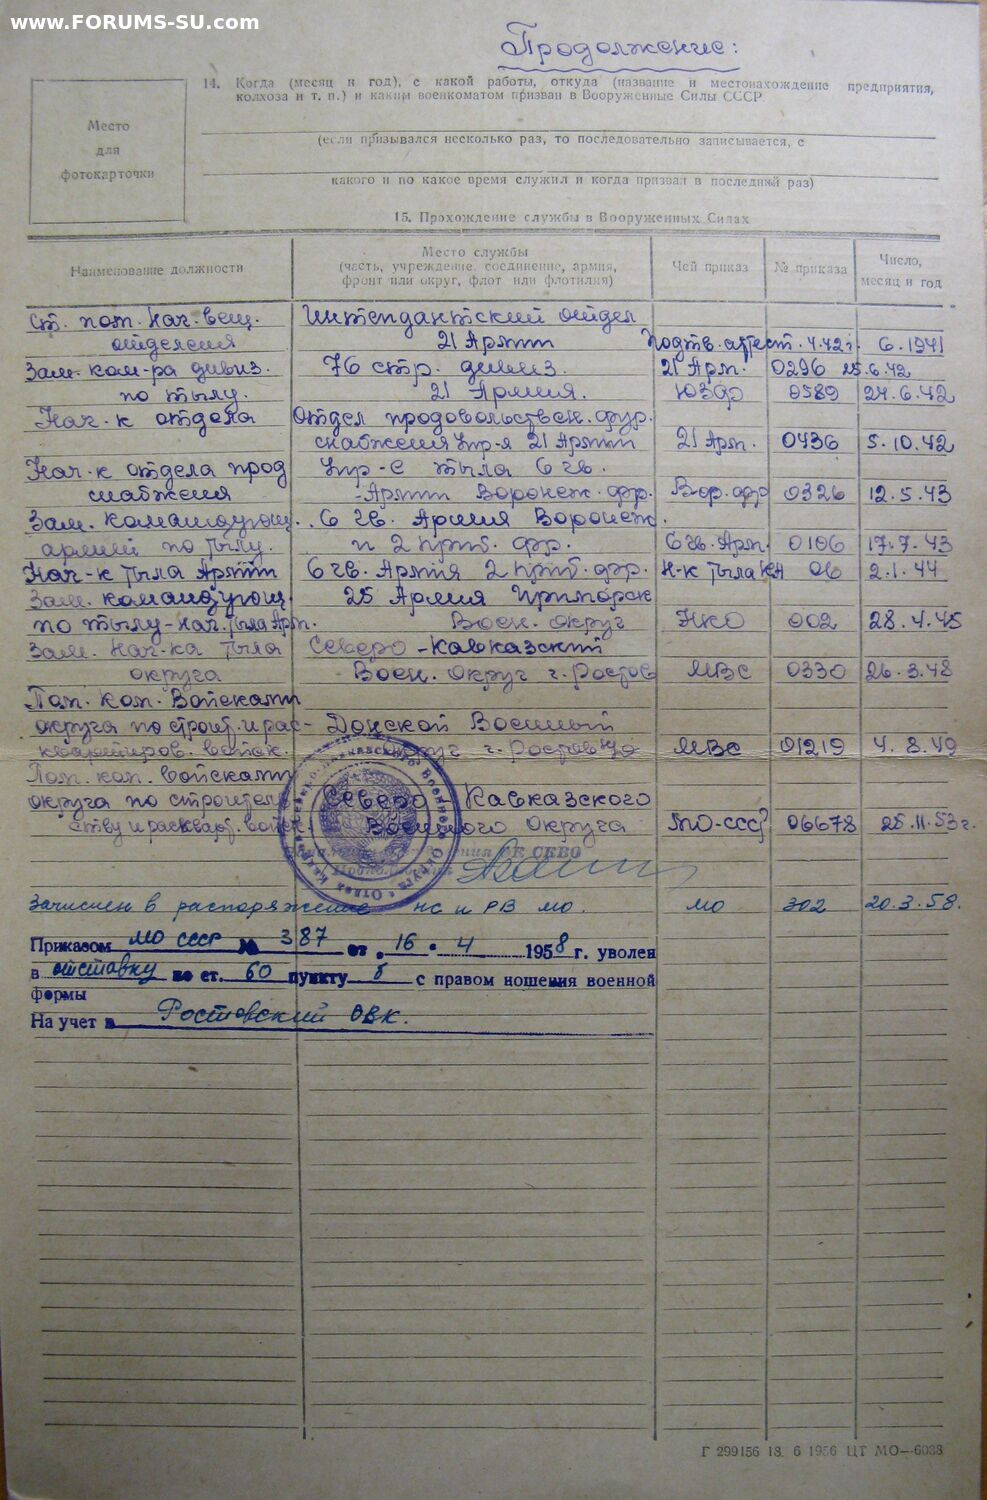 www.FORUMS-SU.com
Продолжение:
Место
для
фотокарточки
14. Когда (месяц и год), с какой работы, откуда (название и местонахождение предприятия,
колхоза и т. п.) и каким военкоматом призван в Вооруженные Силы СССР
(если призывался несколько раз, то последовательно записывается, с
какого и по какое время служил и когда призван в последний раз)
15. Прохождение службы в Вооруженных Силах
Наименование должности
Место службы
(часть, учреждение, соединение, армия,
фронт или округ, флот или флотилия)
Чей приказ
№ приказа
Число,
месяц и год
Ст. пом. нач. вещ. Интендантский отдел
отделения 21 Армии Подтв. аттест. 4.42г. 6.1941
Зам. ком-ра дивиз. 76 стр. дивиз. 21 Арм. 0296 25.6.42
по тылу. 21 Армия. ЮЗФ 0589 24.6.42
Нач-к отдела Отдел продовольствен. фур.
снабжения Упр-я 21 Армии 21 Арм. 0436 5.10.42
Нач-к отдела прод Упр-е тыла 6 гв.
снабжения -Армии Воронеж. фр. Вор. фр 0326 12.5.43
Зам. командующ. 6 гв. Армия Воронеж.
армией по тылу. и 2 приб. фр. 6 гв. Арм. 0106 17.7.43
Нач-к тыла Армии 6 гв. Армия 2 приб. фр. Н-к тыла КА 06 2.1.44
Зам. командующ. 25 Армия Приморск
по тылу-нач. тыла Арм. Воен. округ НКО 002 28.4.45
Зам. Нач-ка тыла Северо-Кавказский
округа Воен. округ г. Ростов МВС 0330 26.3.48
Пом. ком. Войсками
округа по строит. и рас- Донской Военный
квартиров. войск. округ г. Ростов н/Д МВС 01219 4.8.49
Пом. ком. войсками
округа по строитель Северо Кавказского
ству и раскварт. войск. Военного округа МО-СССР 06678 25.11.53г.
Зачислен в распоряжение НС и РВ МО. МО 302 20.3.58.
Приказом МО СССР № 387 от 16. 4 1958 г. уволен
в отставку по ст. 60 пункту б с правом ношения военной
формы
На учет в Ростовский ОВК.
Г 299156 18. 6 1956 ЦТ МО—6038